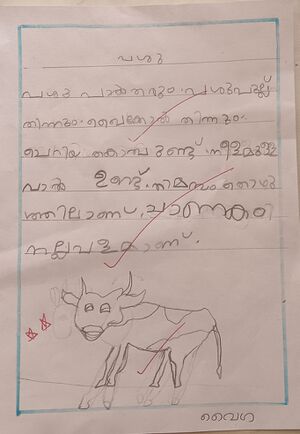 പശു
പശു പാൽ തരും. പശു പുല്ല്
തിന്നും. വൈക്കോൽ തിന്നും.
ചെറിയ കൊമ്പുണ്ട്. നീളമുള്ള
വാൽ ഉണ്ട്. തൊഴു
ത്തിലാണ്. ചാണകം
നല്ല വളമാണ്.
വൈഗ